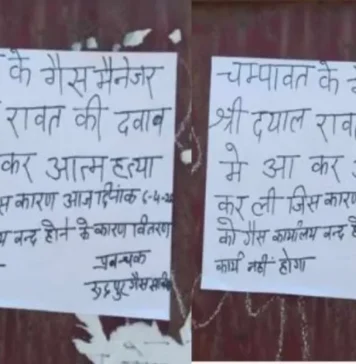 के गैस मैनेजर
रावत की दवाब
कर आत्म हत्या
स कारण आज दिनांक 6-4-2
य बन्द होने के कारण वितरण
प्रबन्धक
रूद्रपुर गैस सर्वि
चम्पावत के
श्री दयाल राव
मे आ कर
कर ली जिस कारण
को गैस कार्यालय बन्द ह
कार्य नही होगा